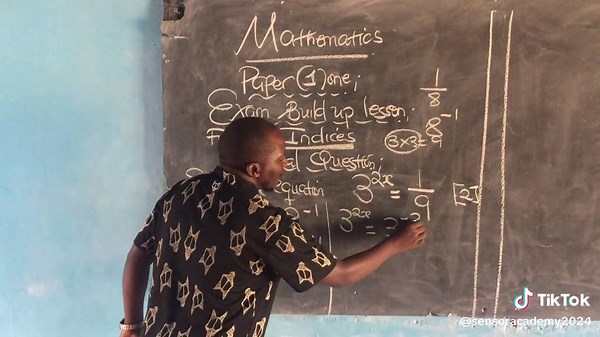 Mathematics
Paper (1) one;
Exam Build up lesson;
Indices
Question;
Equation
3^2x = 1/9 [2]
1/8
8^-1
3×3=9
3^2x
= 3^-2
TikTok
@sensoracademy2024